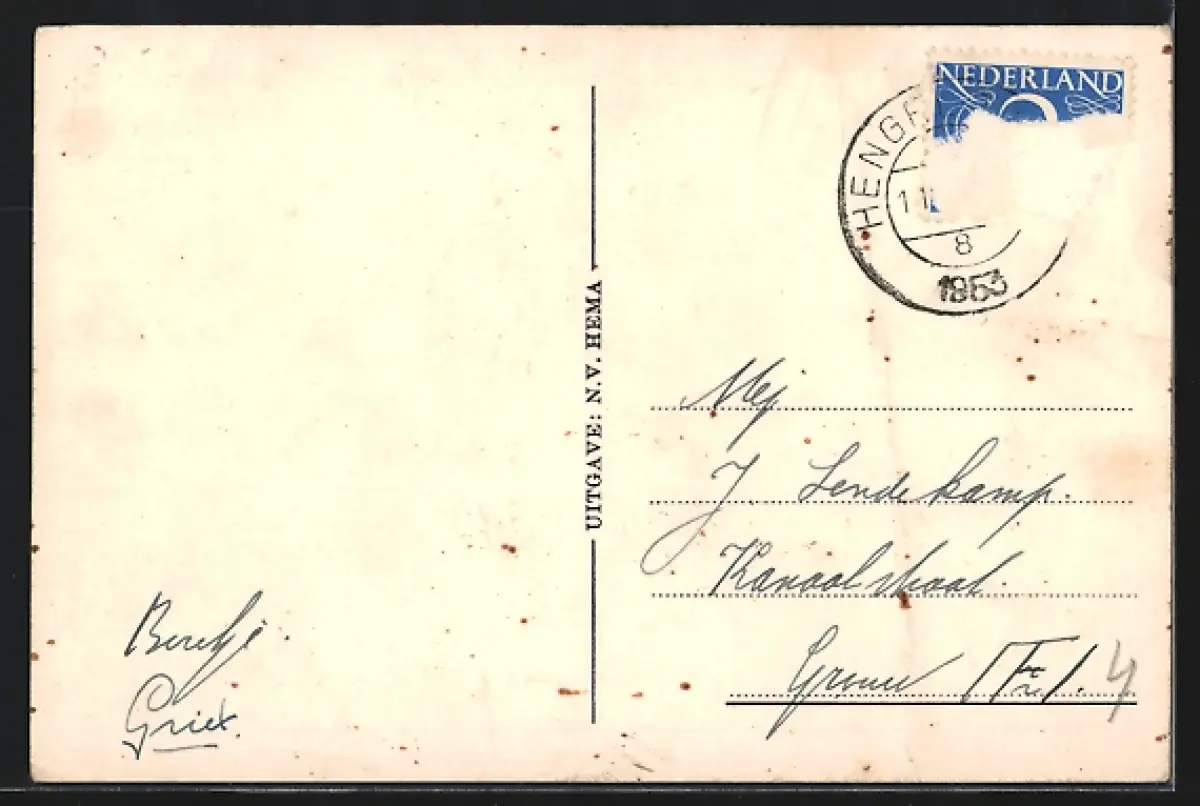 NEDERLAND
2
HENGE
1 1
8
1953
UITGAVE: N.V. HEMA
Mej
J Lendekamp.
Kanaalstraat.
Grouw (Fr).
4
Griet.